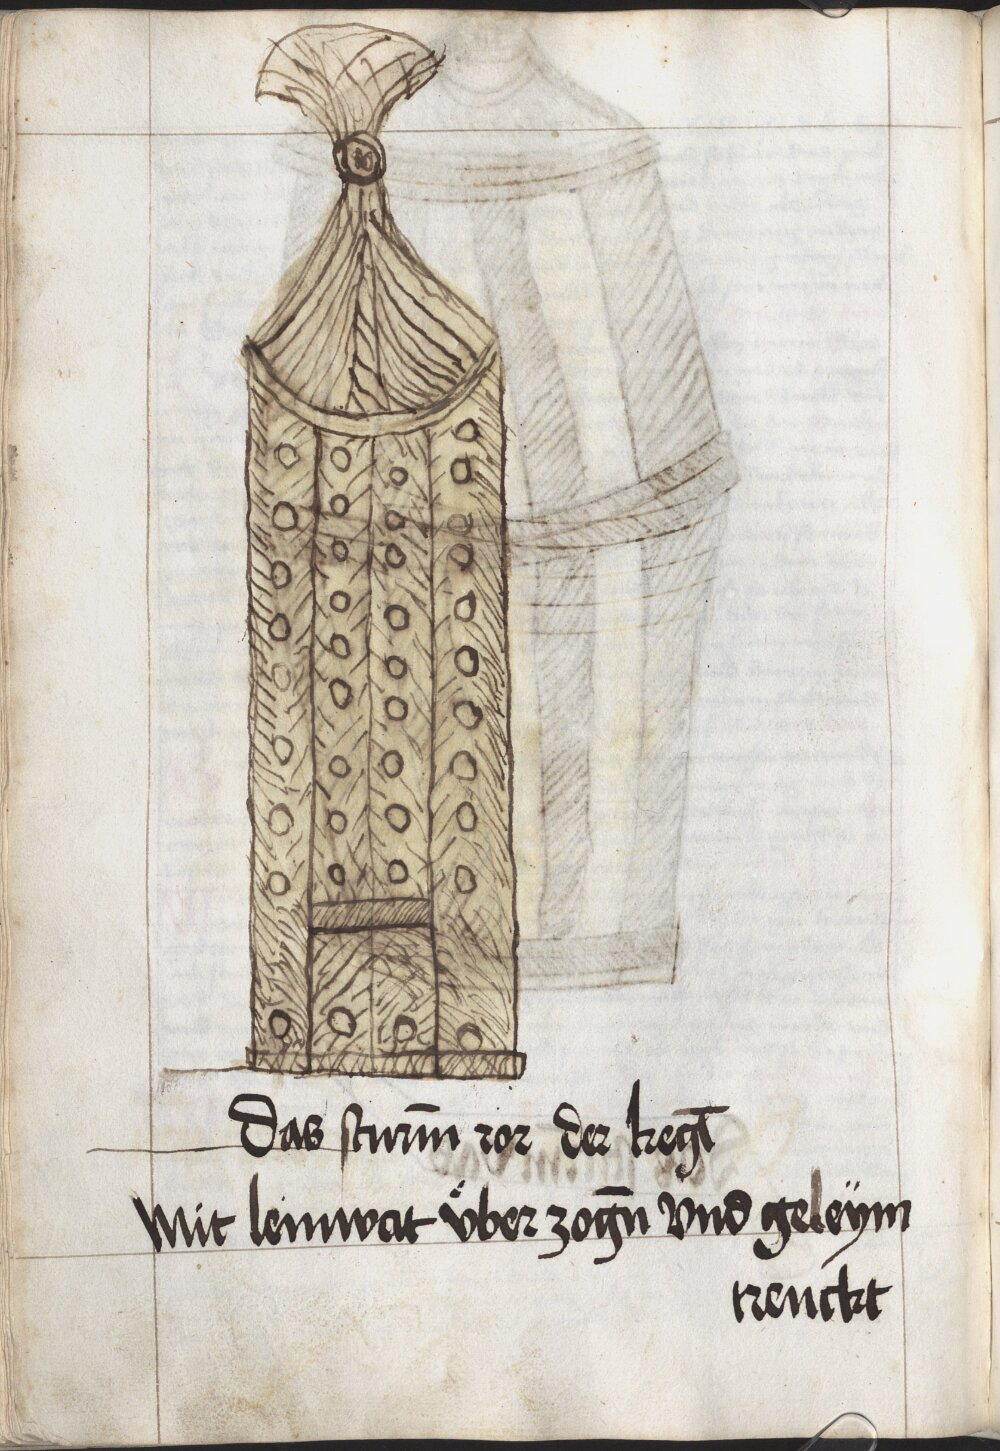 Das sturm̄ ror der kegl̄
Mit leinwat v̈ber zogn̄ vnd geleÿm
trenckt